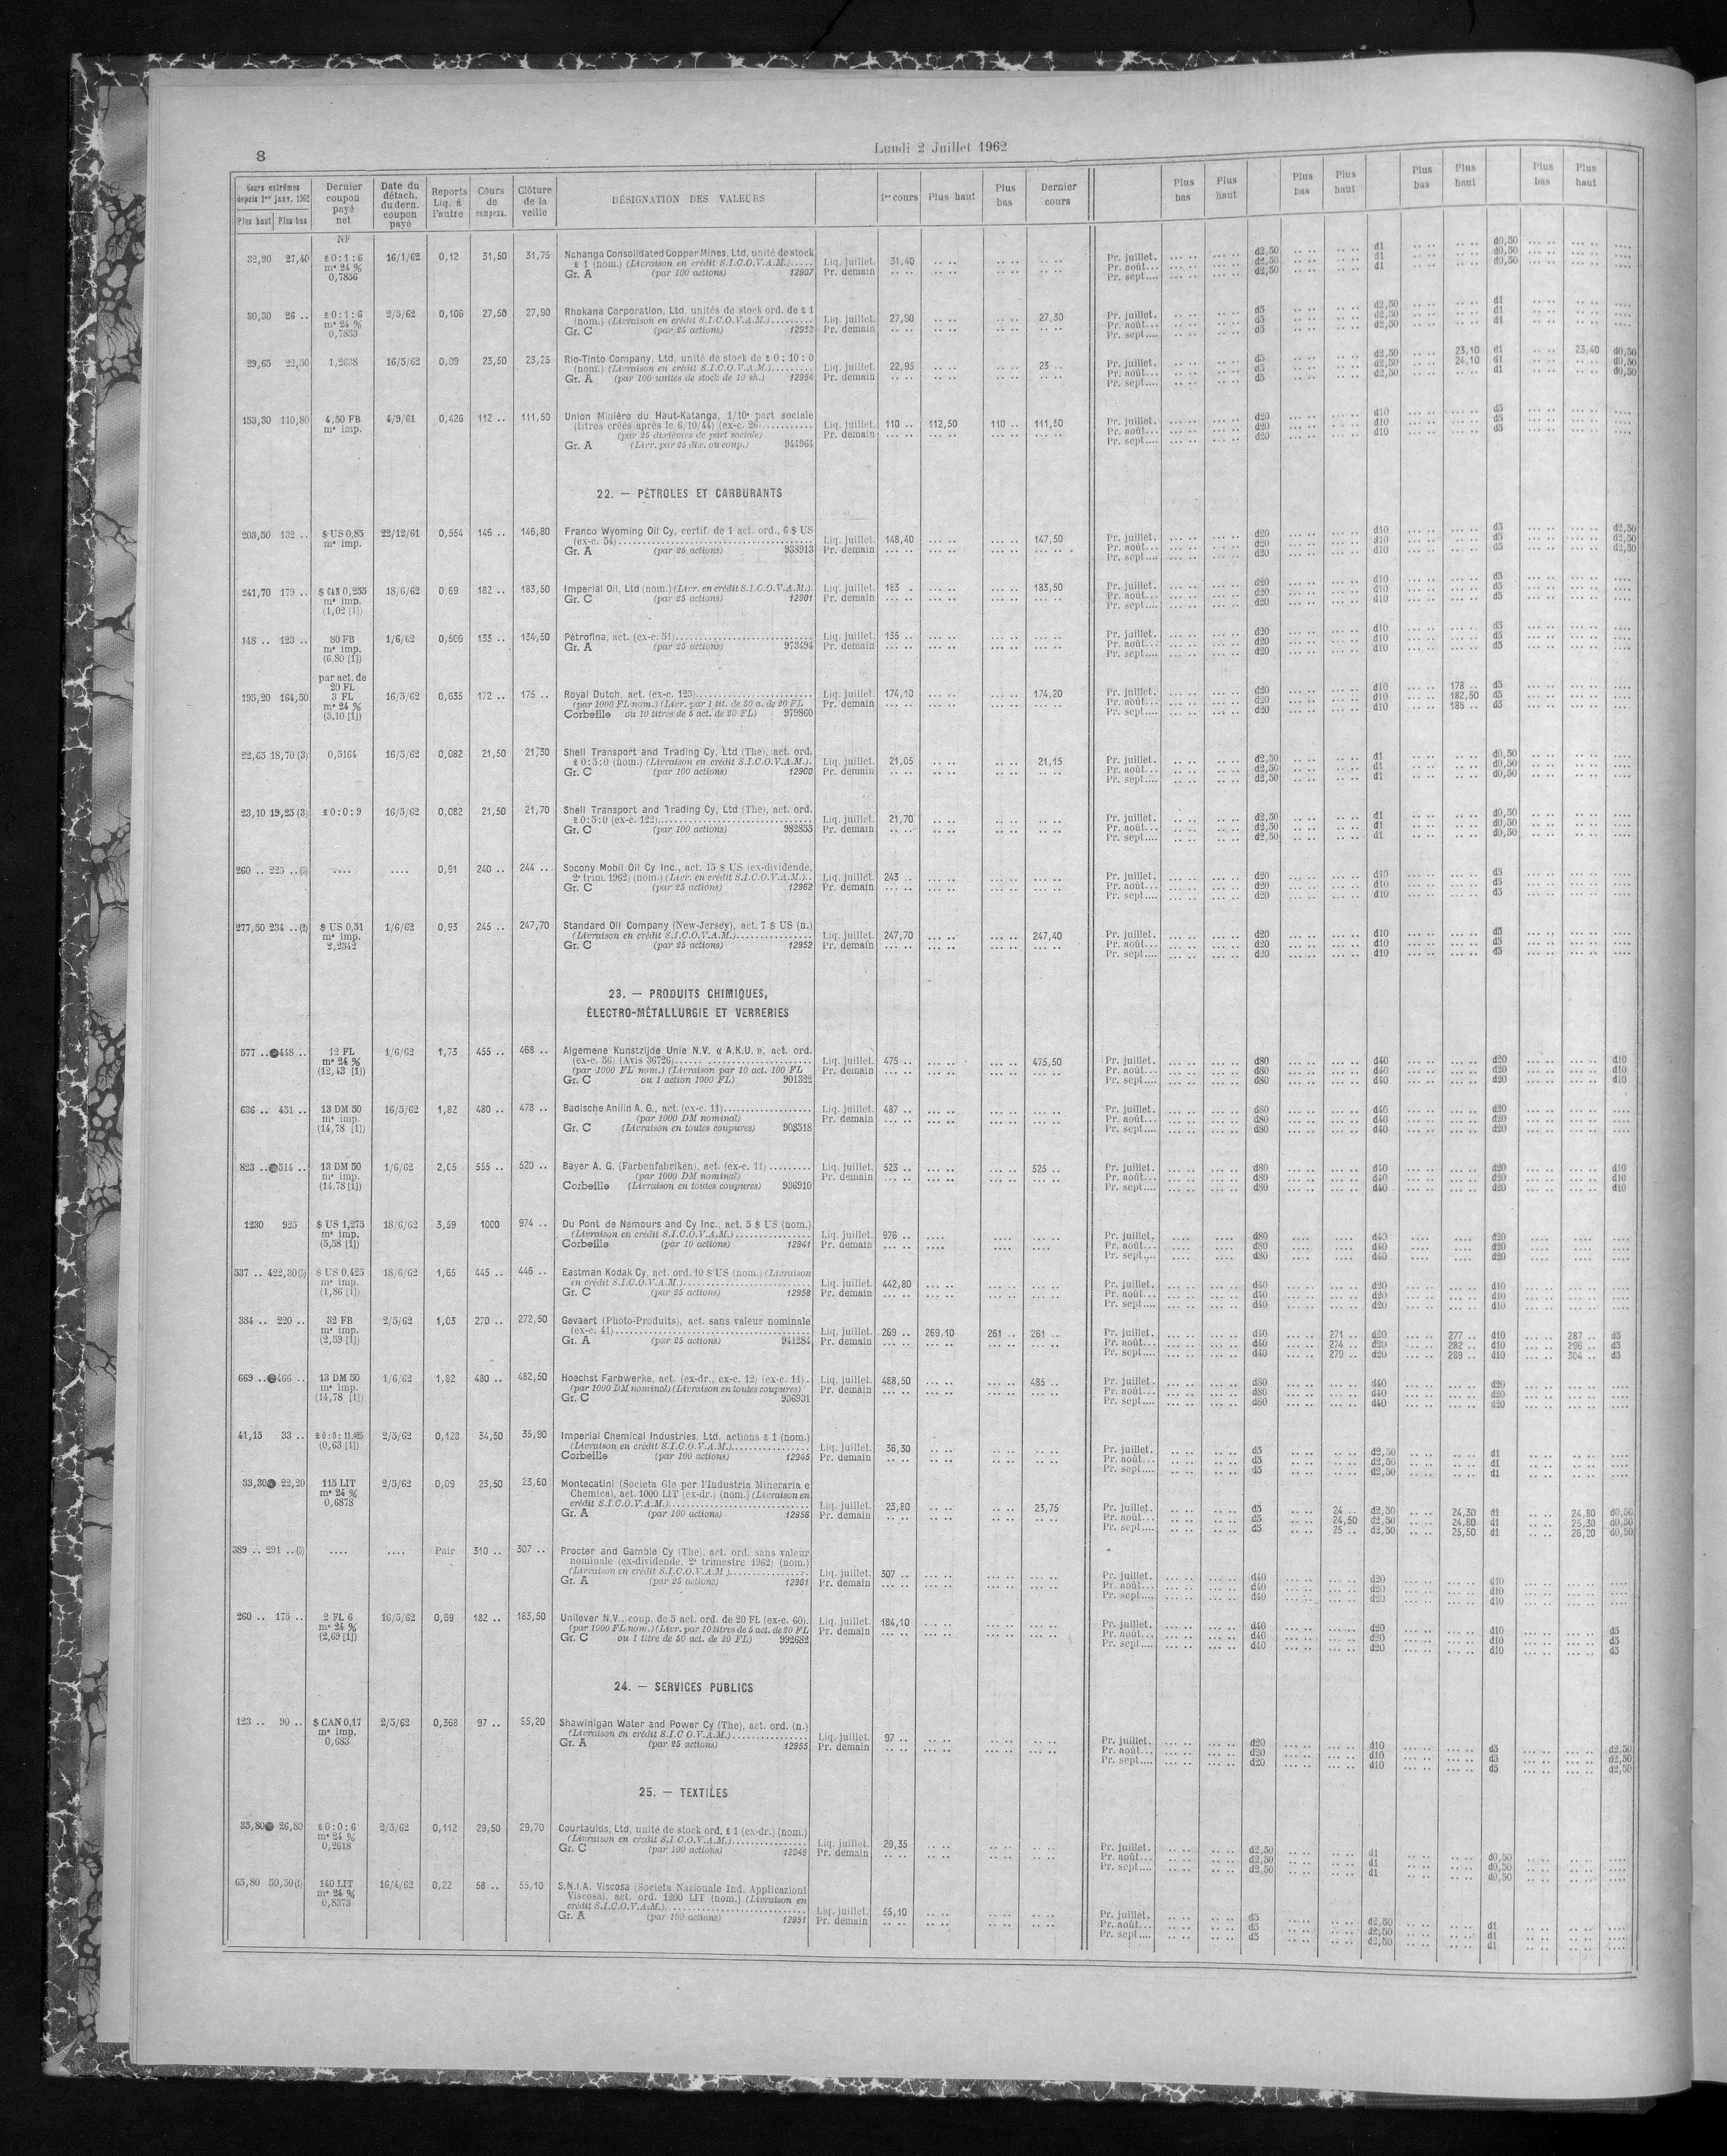 8
Lundi 2 Juillet 1962
Cours extrêmes depuis 1er janv. 1962 Plus haut Plus bas | Dernier coupon payé net | Date du détach. du dern. coupon payé | Reports Liq. à l'autre | Côurs de compens. | Clôture de la veille | DÉSIGNATION DES VALEURS | 1er cours | Plus haut | Plus bas | Dernier cours | Plus bas | Plus haut | Plus bas | Plus haut | Plus bas | Plus haut | Plus bas | Plus haut
NF
32,90 27,40 | £ 0 : 1 : 6 | 16/1/62 | 0,12 | 31,50 | 31,75 | Nchanga Consolidated Copper Mines, Ltd, unité de stock
m" 24 % | £ 1 (nom.) (Livraison en crédit S.I.C.O.V.A.M.)..... | Liq. juillet. | 31,40 | Pr. juillet. | d2,50 | d1 | d0,50
0,7856 | Gr. A (par 100 actions) 12907 | Pr. demain | Pr. août... | d2,50 | d1 | d0,50
Pr. sept.... | d2,50 | d1 | d0,50
30,30 26 .. | £ 0 : 1 : 6 | 2/5/62 | 0,106 | 27,50 | 27,90 | Rhokana Corporation, Ltd, unités de stock ord. de £ 1
m" 24 % | (nom.) (Livraison en crédit S.I.C.O.V.A.M.)......... | Liq. juillet. | 27,90 | 27,30 | Pr. juillet. | d5 | d2,50 | d1
0,7853 | Gr. C (par 25 actions) 12953 | Pr. demain | Pr. août... | d5 | d2,50 | d1
Pr. sept.... | d5 | d2,50 | d1
29,65 22,50 | 1,2638 | 16/5/62 | 0,09 | 23,50 | 23,25 | Rio-Tinto Company, Ltd, unité de stock de £ 0 : 10 : 0
(nom.) (Livraison en crédit S.I.C.O.V.A.M.)......... | Liq. juillet. | 22,95 | 23 .. | Pr. juillet. | d5 | d2,50 | 23,10 d1 | 23,40 d0,50
Gr. A (par 100 unités de stock de 10 sh.) 12954 | Pr. demain | Pr. août... | d5 | d2,50 | 24,10 d1 | d0,50
Pr. sept.... | d5 | d2,50 | d1 | d0,50
153,30 110,80 | 4,50 FB | 4/9/61 | 0,426 | 112 .. | 111,50 | Union Minière du Haut-Katanga, 1/10e part sociale
m" imp. | (titres créés après le 6/10/44) (ex-c. 26)........... | Liq. juillet. | 110 .. | 112,50 | 110 .. | 111,50 | Pr. juillet. | d20 | d10 | d5
(par 25 dixièmes de part sociale) | Pr. demain | Pr. août... | d20 | d10 | d5
Gr. A (Livr. par 25 dix. ou coup.) 944964 | Pr. sept.... | d20 | d10 | d5
22. — PÉTROLES ET CARBURANTS
203,50 132 .. | $ US 0,85 | 22/12/61 | 0,554 | 146 .. | 146,80 | Franco Wyoming Oil Cy, certif. de 1 act. ord., 6 $ US
m" imp. | (ex-c. 54)........................ | Liq. juillet. | 148,40 | 147,50 | Pr. juillet. | d20 | d10 | d5 | d2,50
Gr. A (par 25 actions) 938913 | Pr. demain | Pr. août... | d20 | d10 | d5 | d2,50
Pr. sept.... | d20 | d10 | d5 | d2,50
241,70 179 .. | $ CAN 0,255 | 18/6/62 | 0,69 | 182 .. | 183,50 | Imperial Oil, Ltd (nom.) (Livr. en crédit S.I.C.O.V.A.M.). | Liq. juillet. | 183 . | 183,50 | Pr. juillet. | d20 | d10 | d5
m" imp. | Gr. C (par 25 actions) 12901 | Pr. demain | Pr. août... | d20 | d10 | d5
(1,02 [1]) | Pr. sept.... | d20 | d10 | d5
148 .. 123 .. | 80 FB | 1/6/62 | 0,506 | 133 .. | 134,50 | Pétrofina, act. (ex-c. 51)........................ | Liq. juillet. | 135 .. | Pr. juillet. | d20 | d10 | d5
m" imp. | Gr. A (par 25 actions) 973494 | Pr. demain | Pr. août... | d20 | d10 | d5
(6,80 [1]) | Pr. sept.... | d20 | d10 | d5
par act. de
20 FL
195,20 164,50 | 3 FL | 16/5/62 | 0,635 | 172 .. | 175 .. | Royal Dutch, act. (ex-c. 125)...................... | Liq. juillet. | 174,10 | 174,20 | Pr. juillet. | d20 | d10 | 178 .. d5
m" 24 % | (par 1000 FL nom.) (Livr. par 1 tit. de 50 a. de 20 FL | Pr. demain | Pr. août... | d20 | d10 | 182,50 d5
(3,10 [1]) | Corbeille ou 10 titres de 5 act. de 20 FL) 979860 | Pr. sept.... | d20 | d10 | 185 .. d5
22,65 18,70 (3) | 0,5164 | 16/5/62 | 0,082 | 21,50 | 21,30 | Shell Transport and Trading Cy, Ltd (The), act. ord.
£ 0 : 5 : 0 (nom.) (Livraison en crédit S.I.C.O.V.A.M.). | Liq. juillet. | 21,05 | 21,15 | Pr. juillet. | d2,50 | d1 | d0,50
Gr. C (par 100 actions) 12900 | Pr. demain | Pr. août... | d2,50 | d1 | d0,50
Pr. sept.... | d2,50 | d1 | d0,50
23,10 19,25 (3) | £ 0 : 0 : 9 | 16/5/62 | 0,082 | 21,50 | 21,70 | Shell Transport and Trading Cy, Ltd (The), act. ord.
£ 0 : 5 : 0 (ex-c. 122)........................ | Liq. juillet. | 21,70 | Pr. juillet. | d2,50 | d1 | d0,50
Gr. C (par 100 actions) 982855 | Pr. demain | Pr. août... | d2,50 | d1 | d0,50
Pr. sept.... | d2,50 | d1 | d0,50
260 .. 225 .. | .... | .... | 0,91 | 240 .. | 244 .. | Socony Mobil Oil Cy Inc., act. 15 $ US (ex-dividende,
2e trim. 1962) (nom.) (Livr. en crédit S.I.C.O.V.A.M.).. | Liq. juillet. | 243 .. | Pr. juillet. | d20 | d10 | d5
Gr. C (par 25 actions) 12962 | Pr. demain | Pr. août... | d20 | d10 | d5
Pr. sept.... | d20 | d10 | d5
277,50 234 .. (2) | $ US 0,51 | 1/6/62 | 0,93 | 245 .. | 247,70 | Standard Oil Company (New-Jersey), act. 7 $ US (n.)
m" imp. | (Livraison en crédit S.I.C.O.V.A.M.)................ | Liq. juillet. | 247,70 | 247,40 | Pr. juillet. | d20 | d10 | d5
2,2342 | Gr. C (par 25 actions) 12952 | Pr. demain | Pr. août... | d20 | d10 | d5
Pr. sept.... | d20 | d10 | d5
23. — PRODUITS CHIMIQUES,
ÉLECTRO-MÉTALLURGIE ET VERRERIES
577 .. 448 .. | 12 FL | 1/6/62 | 1,73 | 455 .. | 468 .. | Algemene Kunstzijde Unie N.V. « A.K.U. », act. ord.
m" 24 % | (ex-c. 56) (Avis 36726)........................ | Liq. juillet. | 475 .. | 475,50 | Pr. juillet. | d80 | d40 | d20 | d10
(12,43 [1]) | (par 1000 FL nom.) (Livraison par 10 act. 100 FL | Pr. demain | Pr. août... | d80 | d40 | d20 | d10
Gr. C ou 1 action 1000 FL) 901322 | Pr. sept.... | d80 | d40 | d20 | d10
636 .. 451 .. | 13 DM 50 | 16/5/62 | 1,82 | 480 .. | 478 .. | Badische Anilin A. G., act. (ex-c. 11)................. | Liq. juillet. | 487 .. | Pr. juillet. | d80 | d40 | d20
m" imp. | (par 1000 DM nominal) | Pr. demain | Pr. août... | d80 | d40 | d20
(14,78 [1]) | Gr. C (Livraison en toutes coupures) 908518 | Pr. sept.... | d80 | d40 | d20
823 .. 514 .. | 13 DM 50 | 1/6/62 | 2,05 | 555 .. | 520 .. | Bayer A. G. (Farbenfabriken), act. (ex-c. 11) ......... | Liq. juillet. | 523 .. | 525 .. | Pr. juillet. | d80 | d40 | d20 | d10
m" imp. | (par 1000 DM nominal) | Pr. demain | Pr. août... | d80 | d40 | d20 | d10
(14,78 [1]) | Corbeille (Livraison en toutes coupures) 936910 | Pr. sept.... | d80 | d40 | d20 | d10
1230 925 | $ US 1,275 | 18/6/62 | 3,59 | 1000 | 974 .. | Du Pont de Nemours and Cy Inc., act. 5 $ US (nom.)
m" imp. | (Livraison en crédit S.I.C.O.V.A.M.)................ | Liq. juillet. | 976 .. | Pr. juillet. | d80 | d40 | d20
(5,58 [1]) | Corbeille (par 10 actions) 12941 | Pr. demain | Pr. août... | d80 | d40 | d20
Pr. sept.... | d80 | d40 | d20
537 .. 422,30 (5) | $ US 0,425 | 18/6/62 | 1,65 | 445 .. | 446 .. | Eastman Kodak Cy, act. ord. 10 $ US (nom.) (Livraison
m" imp. | en crédit S.I.C.O.V.A.M.)........................ | Liq. juillet. | 442,80 | Pr. juillet. | d40 | d20 | d10
(1,86 [1]) | Gr. C (par 25 actions) 12958 | Pr. demain | Pr. août... | d40 | d20 | d10
Pr. sept.... | d40 | d20 | d10
384 .. 220 .. | 32 FB | 2/5/62 | 1,03 | 270 .. | 272,50 | Gevaert (Photo-Produits), act. sans valeur nominale
m" imp. | (ex-c. 41)........................ | Liq. juillet. | 269 .. | 269,10 | 261 .. | 261 .. | Pr. juillet. | d40 | 271 .. d20 | 277 .. d10 | 287 .. d5
(2,59 [1]) | Gr. A (par 25 actions) 941284 | Pr. demain | Pr. août... | d40 | 274 .. d20 | 282 .. d10 | 296 .. d5
Pr. sept.... | d40 | 279 .. d20 | 289 .. d10 | 304 .. d5
669 .. 466 .. | 13 DM 50 | 1/6/62 | 1,82 | 480 .. | 482,50 | Hoechst Farbwerke, act. (ex-dr., ex-c. 12) (ex-c. 11). | Liq. juillet. | 488,50 | 485 .. | Pr. juillet. | d80 | d40 | d20
m" imp. | (par 1000 DM nominal) (Livraison en toutes coupures) | Pr. demain | Pr. août... | d80 | d40 | d20
(14,78 [1]) | Gr. C 936931 | Pr. sept.... | d80 | d40 | d20
41,15 33 .. | £ 0 : 0 : 11.025 | 2/5/62 | 0,128 | 34,50 | 35,90 | Imperial Chemical Industries, Ltd, actions £ 1 (nom.)
(0,63 [1]) | (Livraison en crédit S.I.C.O.V.A.M.)................ | Liq. juillet. | 36,30 | Pr. juillet. | d5 | d2,50 | d1
Corbeille (par 100 actions) 12945 | Pr. demain | Pr. août... | d5 | d2,50 | d1
Pr. sept.... | d5 | d2,50 | d1
33,30 22,20 | 115 LIT | 2/5/62 | 0,09 | 23,50 | 23,60 | Montecatini (Societa Gle per l'Industria Mineraria e
m" 24 % | Chemica), act. 1000 LIT (ex-dr.) (nom.) (Livraison en
0,6878 | crédit S.I.C.O.V.A.M.)........................ | Liq. juillet. | 23,80 | 23,75 | Pr. juillet. | d5 | 24 .. d2,50 | 24,30 d1 | 24,80 d0,50
Gr. A (par 100 actions) 12956 | Pr. demain | Pr. août... | d5 | 24,50 d2,50 | 24,80 d1 | 25,30 d0,50
Pr. sept.... | d5 | 25 .. d2,50 | 25,50 d1 | 26,20 d0,50
389 .. 291 .. | .... | .... | Pair | 310 .. | 307 .. | Procter and Gamble Cy (The), act. ord. sans valeur
nominale (ex-dividende, 2e trimestre 1962) (nom.)
(Livraison en crédit S.I.C.O.V.A.M.)................ | Liq. juillet. | 307 .. | Pr. juillet. | d40 | d20 | d10
Gr. A (par 25 actions) 12961 | Pr. demain | Pr. août... | d40 | d20 | d10
Pr. sept.... | d40 | d20 | d10
260 .. 175 .. | 2 FL 6 | 16/5/62 | 0,69 | 182 .. | 183,50 | Unilever N.V., coup. de 5 act. ord. de 20 FL (ex-c. 60). | Liq. juillet. | 184,10 | Pr. juillet. | d40 | d20 | d10 | d5
m" 24 % | (par 1000 FL nom.) (Livr. par 10 titres de 5 act. de 20 FL | Pr. demain | Pr. août... | d40 | d20 | d10 | d5
(2,69 [1]) | Gr. C ou 1 titre de 50 act. de 20 FL) 992682 | Pr. sept.... | d40 | d20 | d10 | d5
24. — SERVICES PUBLICS
123 .. 90 .. | $ CAN 0,17 | 2/5/62 | 0,368 | 97 .. | 95,20 | Shawinigan Water and Power Cy (The), act. ord. (n.)
m" imp. | (Livraison en crédit S.I.C.O.V.A.M.)................ | Liq. juillet. | 97 .. | Pr. juillet. | d20 | d10 | d5 | d2,50
0,683 | Gr. A (par 25 actions) 12955 | Pr. demain | Pr. août... | d20 | d10 | d5 | d2,50
Pr. sept.... | d20 | d10 | d5 | d2,50
25. — TEXTILES
35,80 26,80 | £ 0 : 0 : 6 | 2/5/62 | 0,112 | 29,50 | 29,70 | Courtaulds, Ltd, unité de stock ord. £ 1 (ex-dr.) (nom.)
m" 24 % | (Livraison en crédit S.I.C.O.V.A.M.)................ | Liq. juillet. | 29,35 | Pr. juillet. | d2,50 | d1 | d0,50
0,2618 | Gr. C (par 100 actions) 12946 | Pr. demain | Pr. août... | d2,50 | d1 | d0,50
Pr. sept.... | d2,50 | d1 | d0,50
65,80 50,50 (1) | 140 LIT | 16/4/62 | 0,22 | 58 .. | 55,10 | S.N.I.A. Viscosa (Societa Nazionale Ind. Applicazioni
m" 24 % | Viscosa), act. ord. 1200 LIT (nom.) (Livraison en
0,8373 | crédit S.I.C.O.V.A.M.)........................ | Liq. juillet. | 55,10 | Pr. juillet. | d5 | d2,50 | d1
Gr. A (par 100 actions) 12951 | Pr. demain | Pr. août... | d5 | d2,50 | d1
Pr. sept.... | d5 | d2,50 | d1